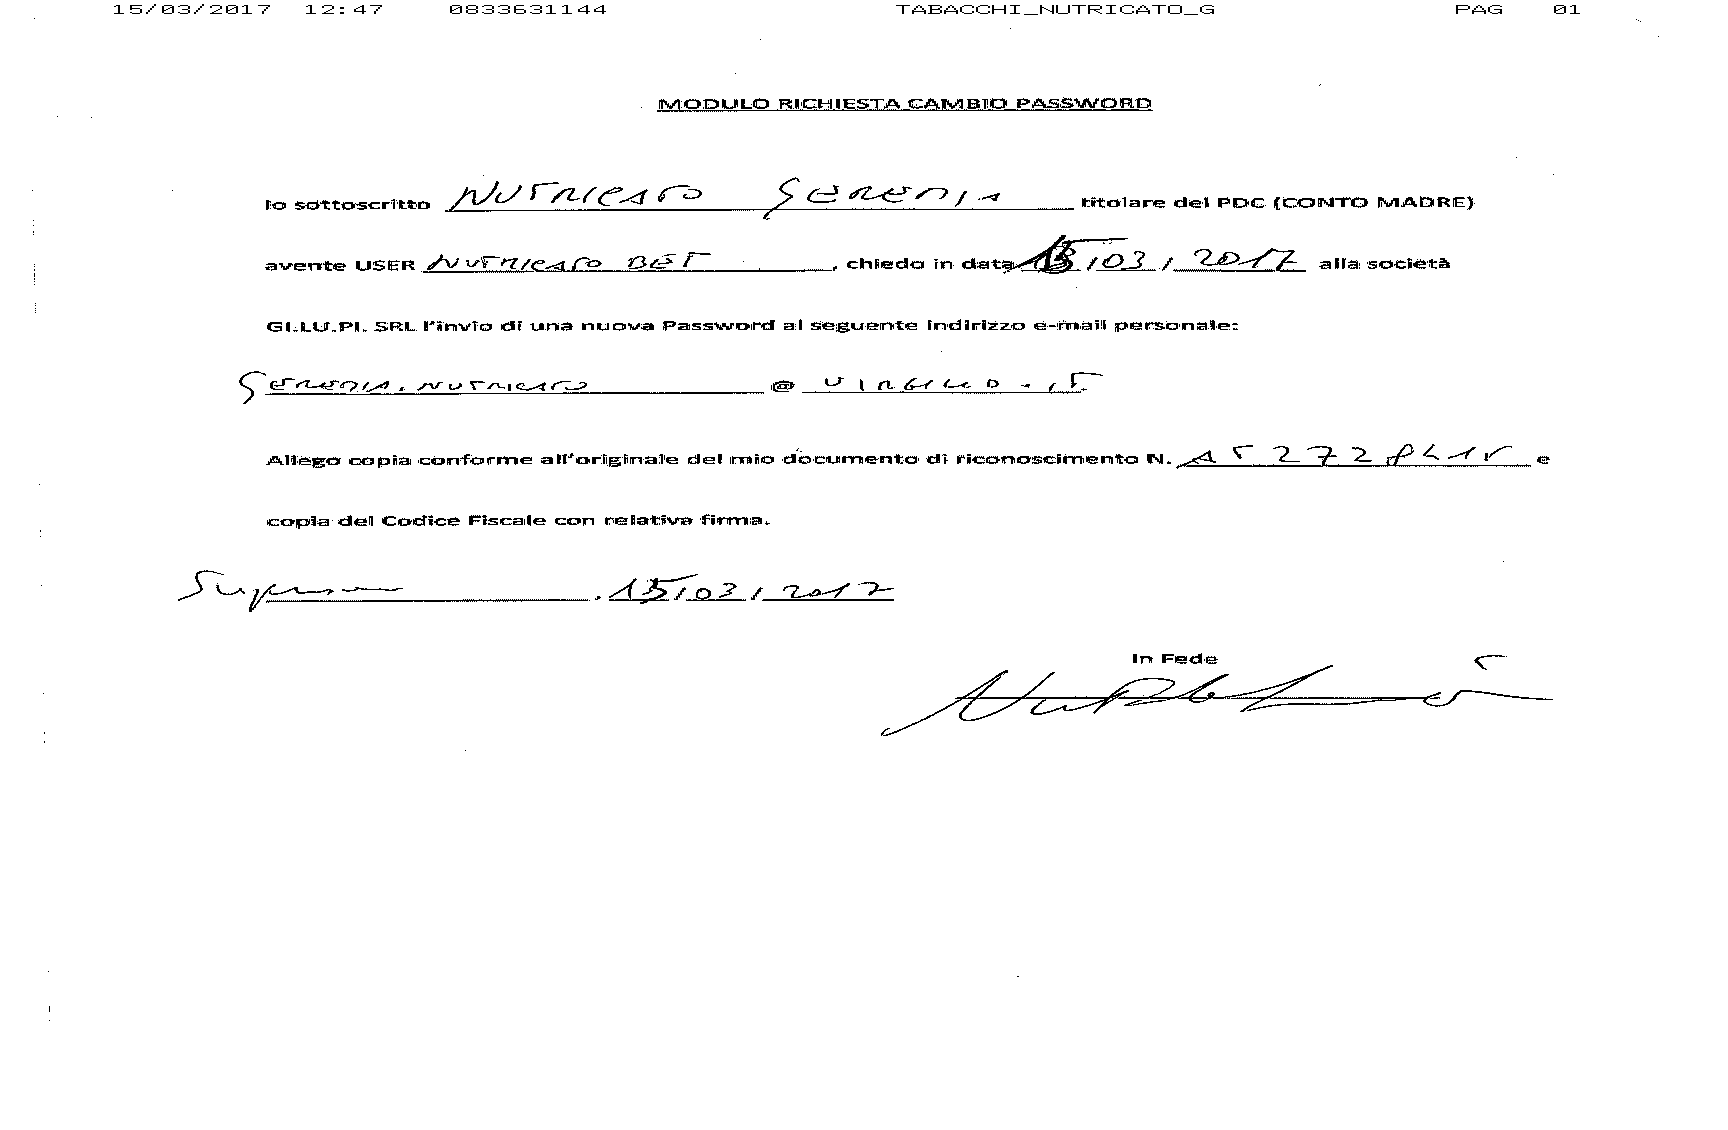 15/03/2017 12:47 0833631144 TABACCHI_NUTRICATO_G PAG 01
MODULO RICHIESTA CAMBIO PASSWORD
Io sottoscritto NUTRICATO GEREMIA titolare del PDC (CONTO MADRE)
avente USER NUTRICATO BET, chiedo in data 15/03/2017 alla società
GI.LU.PI. SRL l'invio di una nuova Password al seguente indirizzo e-mail personale:
GEREMIA.NUTRICATO @ VIRGILIO.IT
Allego copia conforme all'originale del mio documento di riconoscimento N. e
copia del Codice Fiscale con relativa firma.
, 15/03/2017
In Fede